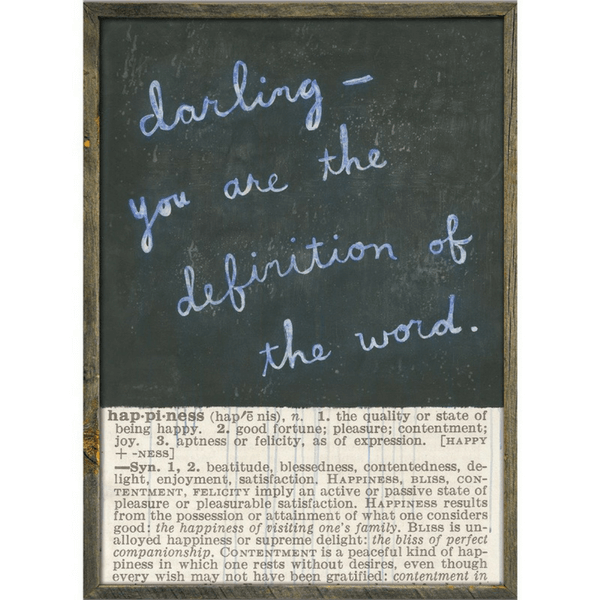 darling –
you are the
definition of
the word.
hap·pi·ness (hap′ē nis), n. 1. the quality or state of
being happy. 2. good fortune; pleasure; contentment;
joy. 3. aptness or felicity, as of expression. [HAPPY
+ -NESS]
—Syn. 1, 2. beatitude, blessedness, contentedness, de-
light, enjoyment, satisfaction. HAPPINESS, BLISS, CON-
TENTMENT, FELICITY imply an active or passive state of
pleasure or pleasurable satisfaction. HAPPINESS results
from the possession or attainment of what one considers
good: the happiness of visiting one's family. BLISS is un-
alloyed happiness or supreme delight: the bliss of perfect
companionship. CONTENTMENT is a peaceful kind of hap-
piness in which one rests without desires, even though
every wish may not have been gratified: contentment in